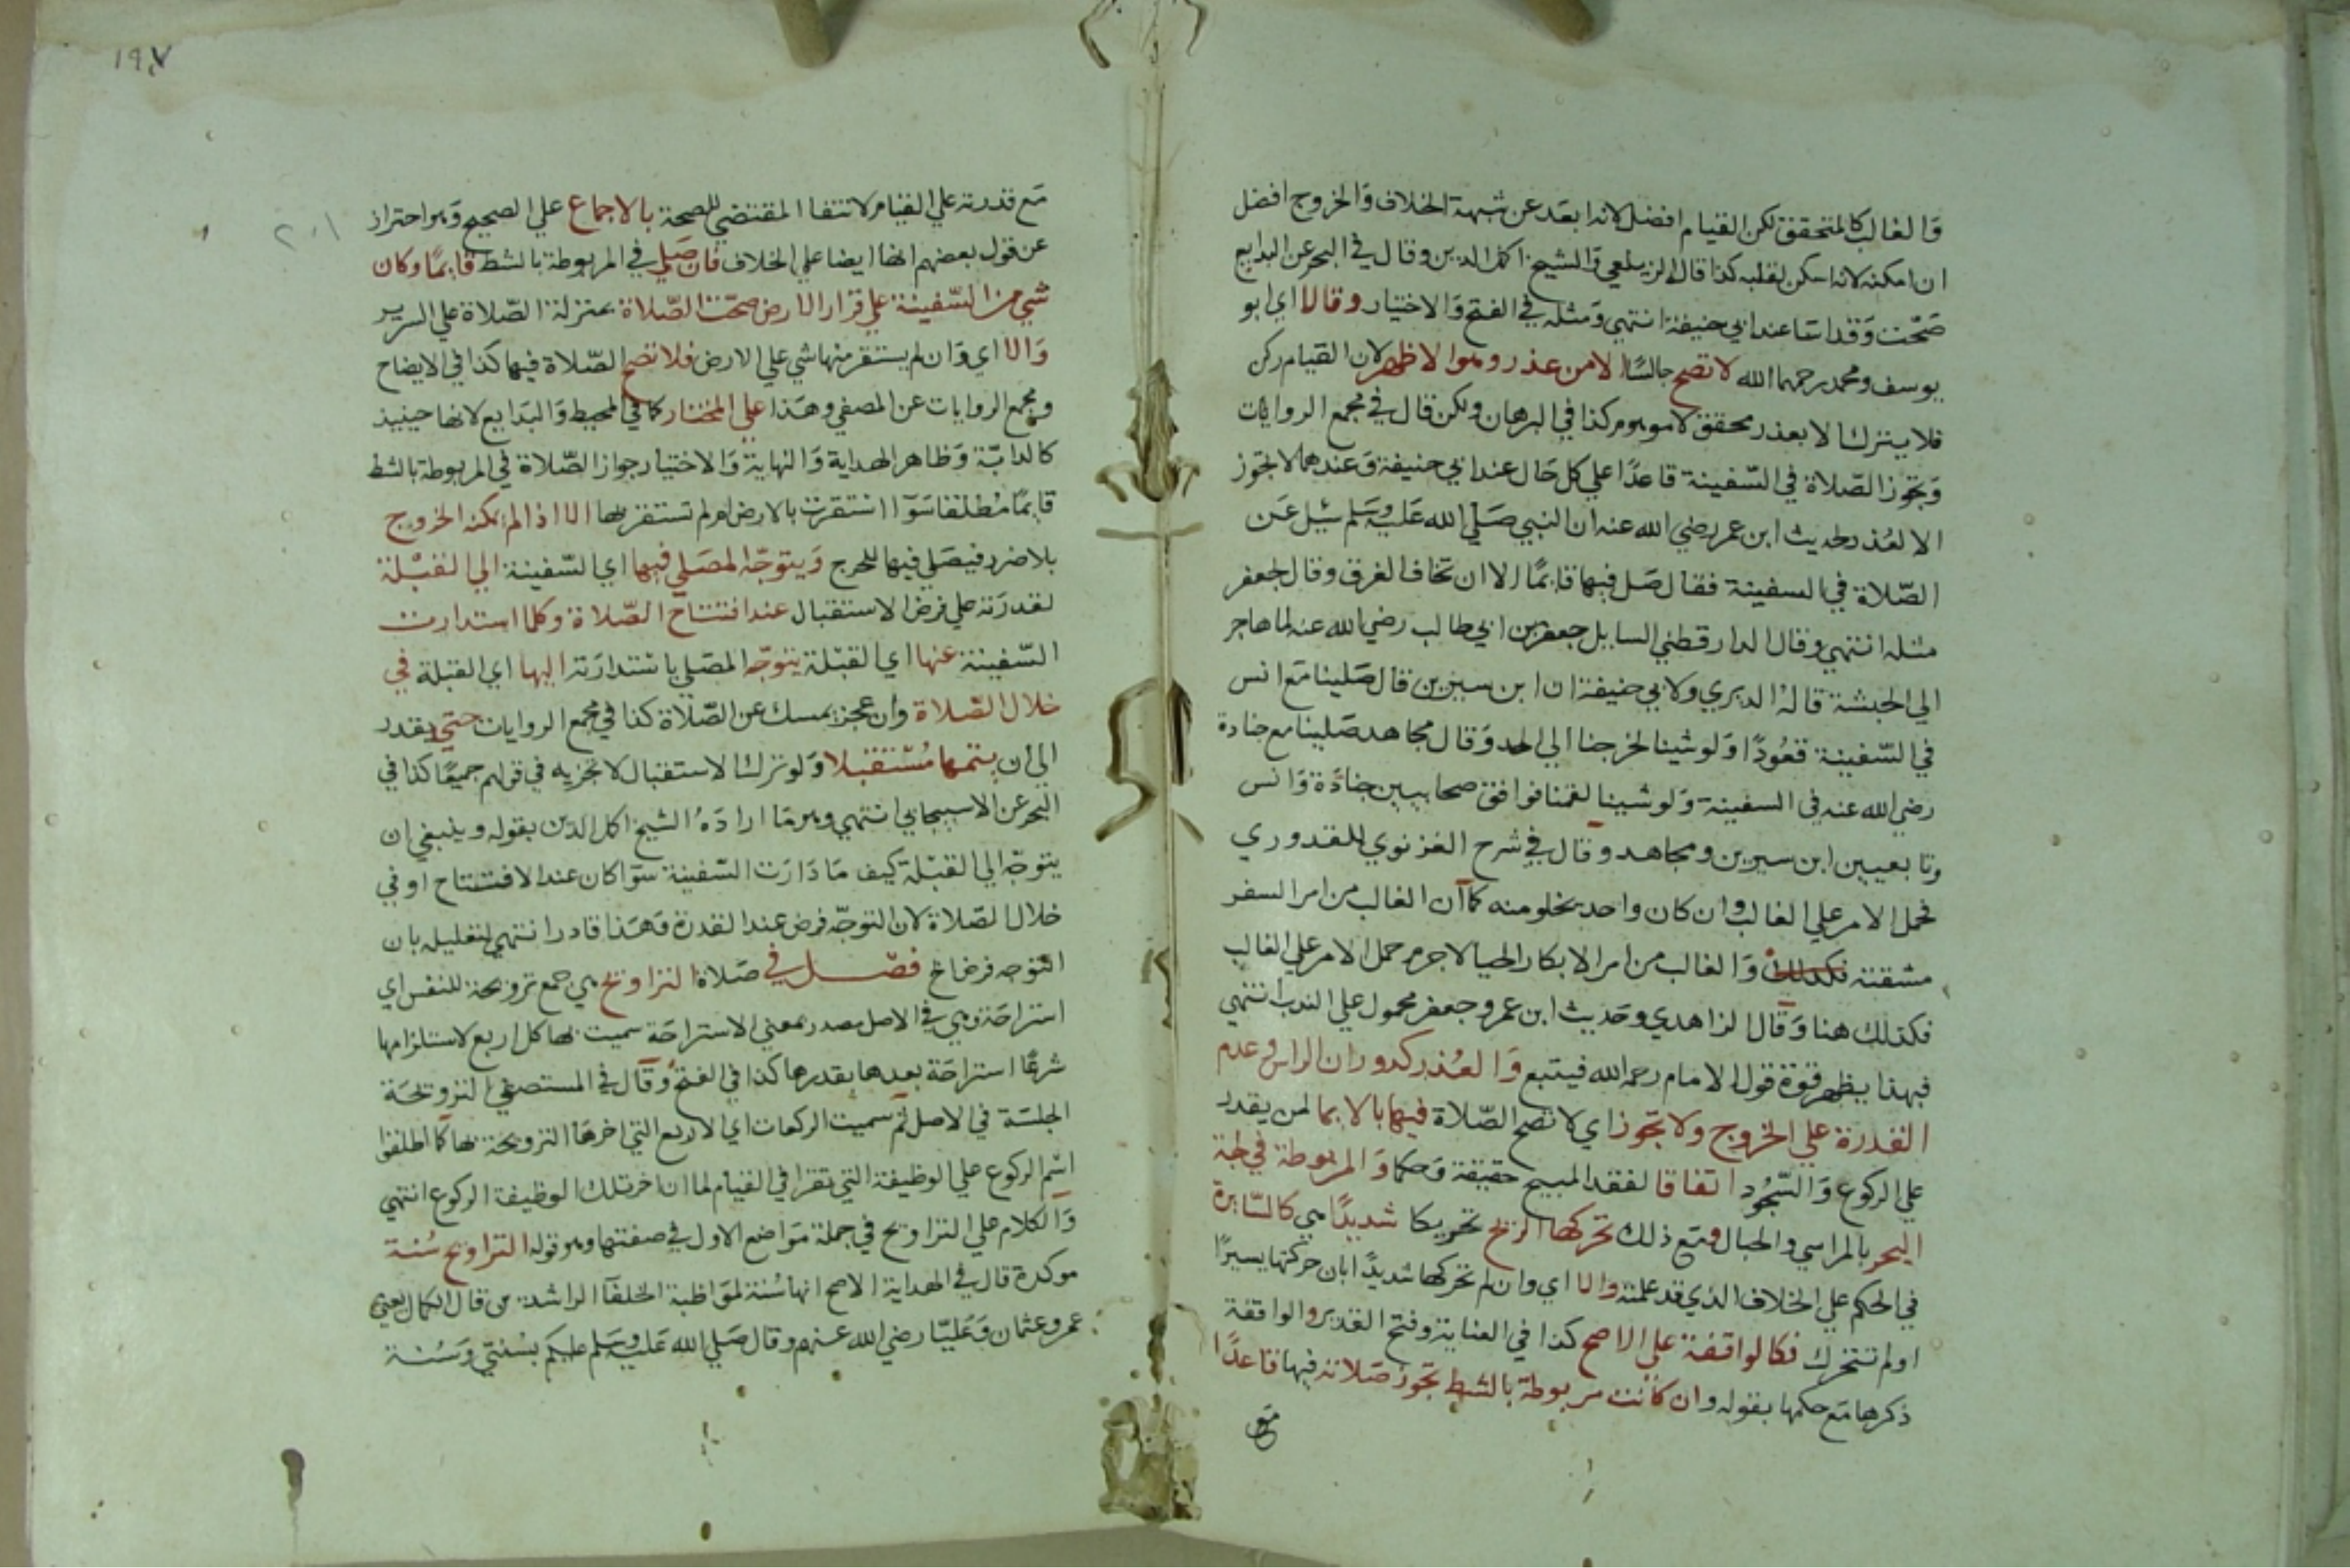 والغالب كالمتحقق لكن القيام افضل لانه ابعد عن شبهة الخلاف والخروج افضل
ان امكنه لانه اسكن لقلبه كذا قال الزيلعي والشيخ اكمل الدين وقال في البحر عن البدايع
صحت وقد اسا عند ابي حنيفة انتهي ومثله في الفتح والاختيار وقالا اي ابو
يوسف ومحمد رحمهما الله لا تصح جالسا الا من عذر وهو الاظهر لان القيام ركن
فلا يترك الا بعذر محقق لا موهوم كذا في البرهان ولكن قال في مجمع الروايات
وتجوز الصلاة في السفينة قاعدا علي كل حال عند ابي حنيفة وعندهما لا تجوز
الا لعذر لحديث ابن عمر رضي الله عنه ان النبي صلي الله عليه وسلم سئل عن
الصلاة في السفينة فقال صل فيها قايما الا ان تخاف الغرق وقال لجعفر
مثله انتهي وقال الدارقطني السايل جعفر بن ابي طالب رضي الله عنه لما هاجر
الي الحبشة قاله الديري ولابي حنيفة ان ابن سيرين قال صلينا مع انس
في السفينة قعودا ولو شينا لخرجنا الي الحد وقال مجاهد صلينا مع جنادة
رضي الله عنه في السفينة ولو شينا لقمنا فوافق صحابيين جنادة وانس
وتابعيين ابن سيرين ومجاهد وقال في شرح الغزنوي للقدوري
فحمل الامر علي الغالب وان كان واحد يخلو منه كما ان الغالب من امر السفر
مشقته فكذلك والغالب من امر الابكار الحيا لا جرم حمل الامر علي الغالب
فكذلك هنا وقال الزاهدي وحديث ابن عمر وجعفر محمول علي الندب انتهي
فبهذا يظهر قوة قول الامام رحمه الله فيتبع والعذر كدوران الراس وعدم
القدرة علي الخروج ولا تجوز اي لا تصح الصلاة فيها بالايما لمن يقدر
علي الركوع والسجود اتفاقا لفقد المبيح حقيقة وحكما والمربوطة في لجة
البحر بالمراسي والحبال ومع ذلك تحركها الريح تحريكا شديدا هي كالسايرة
في الحكم علي الخلاف الذي قد علمته والا اي وان لم تحركها شديدا بان حركتها يسيرا
او لم تتحرك فكالواقفة علي الاصح كذا في العناية وفتح القدير والواقفة
ذكرها مع حكمها بقوله وان كانت مربوطة بالشط تجوز صلاته فيها قاعدا
مع
١٩٧
٢٠١
مع قدرته علي القيام لانتفا المقتضي للصحة بالاجماع علي الصحيح وهو احتراز
عن قول بعضهم انها ايضا علي الخلاف فان صلي في المربوطة بالشط قايما وكان
شي من السفينة علي قرار الارض صحت الصلاة بمنزلة الصلاة علي السرير
والا اي وان لم يستقر منها شي علي الارض فلا تصح الصلاة فيها كذا في الايضاح
ومجمع الروايات عن المصفي وهذا علي المختار كما في المحيط والبدايع لانها حينيذ
كالدابة وظاهر الهداية والنهاية والاختيار جواز الصلاة في المربوطة بالشط
قايما مطلقا سوا استقرت بالارض او لم تستقر بها الا اذا لم يمكنه الخروج
بلا ضرر فيصلي فيها للحرج ويتوجه المصلي فيها اي السفينة الي القبلة
لقدرته علي فرض الاستقبال عند افتتاح الصلاة وكلما استدارت
السفينة عنها اي القبلة يتوجه المصلي باستدارته اليها اي القبلة في
خلال الصلاة وان عجز يمسك عن الصلاة كذا في مجمع الروايات حتي يقدر
الي ان يتمها مستقبلا ولو ترك الاستقبال لا تجزيه في قولهم جميعا كذا في
البحر عن الاسبيجابي انتهي وهو ما اراده الشيخ اكمل الدين بقوله وينبغي ان
يتوجه الي القبلة كيف ما دارت السفينة سوا كان عند الافتتاح او في
خلال الصلاة لان التوجه فرض عند القدرة وهذا قادر انتهي لتعليله بان
التوجه فرض اخ فصل في صلاة التراويح هي جمع ترويحة للنفس اي
استراحة وهي في الاصل مصدر بمعني الاستراحة سميت بها كل اربع لاستلزامها
شرعا استراحة بعدها بقدرها كذا في الفتح وقال في المستصفي الترويحة
الجلسة في الاصل ثم سميت الركعات اي الاربع التي اخرها الترويحة بها كما اطلقوا
اسم الركوع علي الوظيفة التي تقرا في القيام لما ان اخر تلك الوظيفة الركوع انتهي
والكلام علي التراويح في جملة مواضع الاول في صفتها وهو قوله التراويح سنة
موكدة قال في الهداية الاصح انها سنة لمواظبة الخلفا الراشدين قال الكمال يعني
عمر وعثمان وعليا رضي الله عنهم وقال صلي الله عليه وسلم عليكم بسنتي وسنة